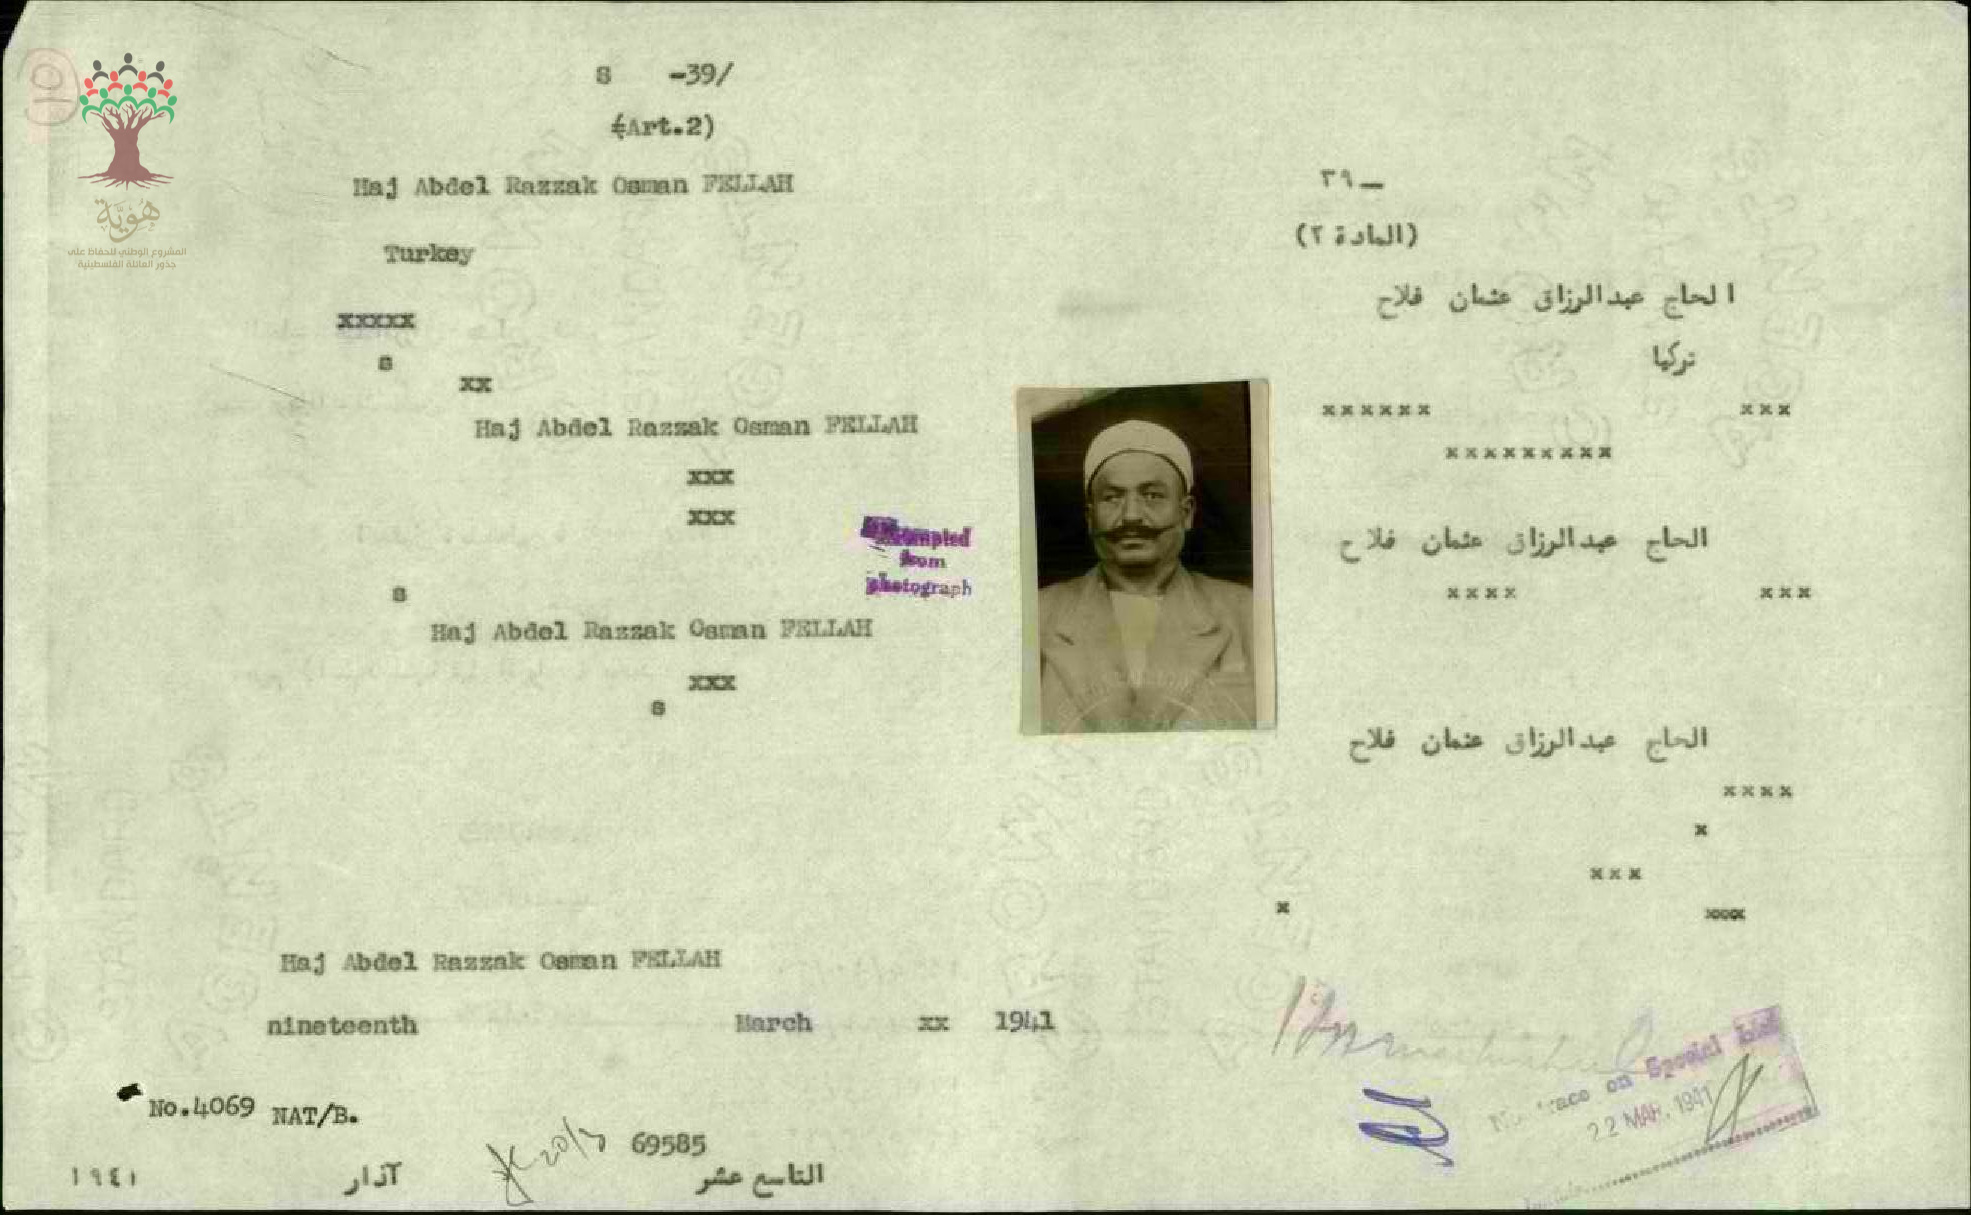 هُوِيَّة
المشروع الوطني للحفاظ على
جذور العائلة الفلسطينية
s -39/
(Art.2)
Haj Abdel Razzak Osman FELLAH
Turkey
xxxxx
s
xx
Haj Abdel Razzak Osman FELLAH
xxx
xxx
from
photograph
s
Haj Abdel Razzak Osman FELLAH
xxx
s
Haj Abdel Razzak Osman FELLAH
nineteenth March xx 1941
No.4069 NAT/B.
69585
١٩٤١ آذار التاسع عشر
٣٩ــ
(المادة ٢)
الحاج عبدالرزاق عثمان فلاح
تركيا
xxxxxx xxx
xxxxxxxxx
الحاج عبدالرزاق عثمان فلاح
xxxx xxx
الحاج عبدالرزاق عثمان فلاح
xxxx
x
xxx
x xxxx
No trace on Special List
22 MAR. 1941